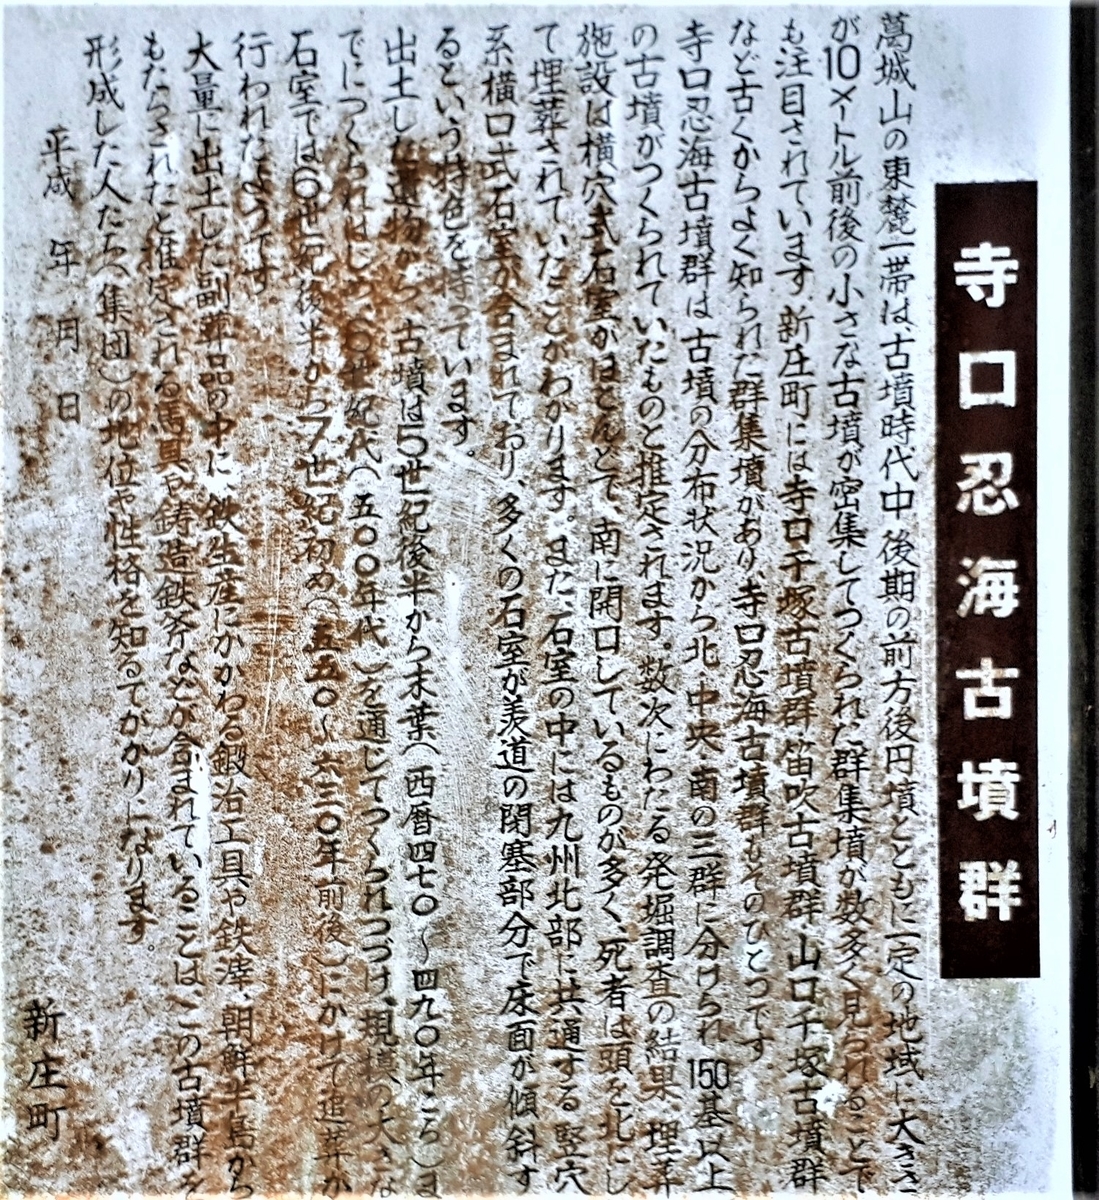 寺口忍海古墳群
葛城山の東麓一帯は、古墳時代中・後期の前方後円墳とともに一定の地域に大きさ
が10メートル前後の小さな古墳が密集してつくられた群集墳が数多く見られることで
も注目されています。新庄町には寺口千塚古墳群・笛吹古墳群・山口千塚古墳群
など古くからよく知られた群集墳があり、寺口忍海古墳群もそのひとつです。
寺口忍海古墳群は古墳の分布状況から北・中央・南の三群に分けられ150基以上
の古墳がつくられていたものと推定されます。数次にわたる発掘調査の結果、埋葬
施設は横穴式石室がほとんどで、南に開口しているものが多く、死者は頭を北にし
て埋葬されていたことがわかります。また、石室の中には九州北部に共通する竪穴
系横口式石室が含まれており、多くの石室が羨道の閉塞部分で床面が傾斜す
るという特色を持っています。
出土した遺物から、古墳は5世紀後半から末葉（西暦四七〇〜四九〇年ころ）ま
でにつくられはじめ、6世紀代（五〇〇年代）を通じてつくられつづけ、規模の大きな
石室では6世紀後半から7世紀初め（五五〇〜六三〇年前後）にかけて追葬が
行われたようです。
大量に出土した副葬品の中に、鉄生産にかかわる鍛冶工具や鉄滓、朝鮮半島から
もたらされたと推定される馬具や鋳造鉄斧などが含まれていることは、この古墳群を
形成した人たち（集団）の地位や性格を知るてがかりになります。
平成 年 月 日
新庄町